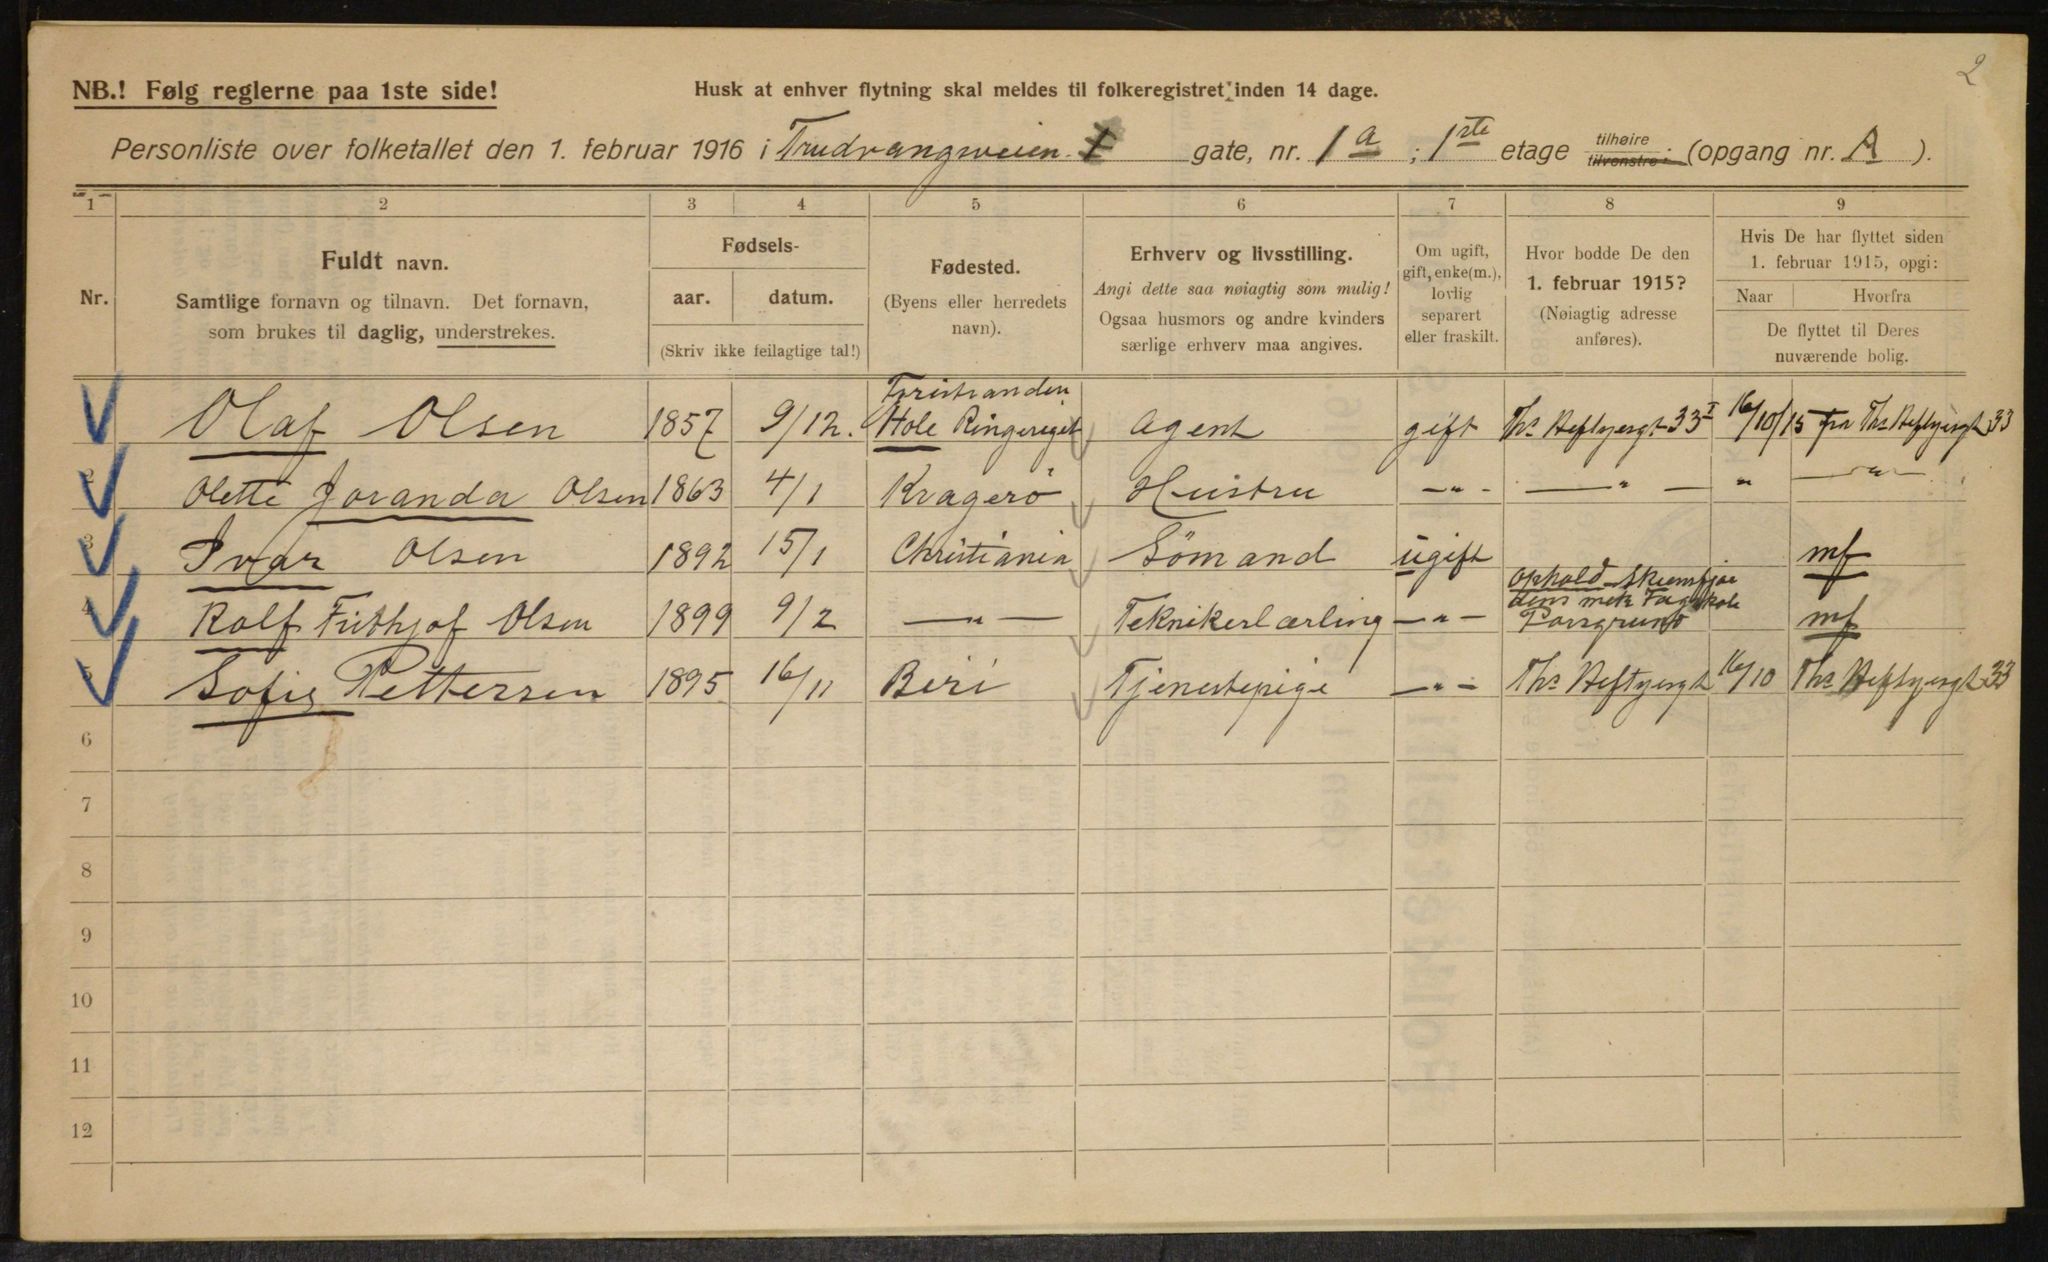 2
NB.! Følg reglerne paa 1ste side!
Husk at enhver flytning skal meldes til folkeregistret inden 14 dage.
Personliste over folketallet den 1. februar 1916 i Trudvangsveien gate, nr. 1 a ; 1ste etage tilhøire tilvenstre (opgang nr. A ).
1 2 3 4 5 6 7 8 9
Nr.
Fuldt navn.
Samtlige fornavn og tilnavn. Det fornavn,
som brukes til daglig, understrekes.
Fødsels-
aar. datum.
(Skriv ikke feilagtige tal!)
Fødested.
(Byens eller herredets
navn).
Erhverv og livsstilling.
Angi dette saa nøiagtig som mulig!
Ogsaa husmors og andre kvinders
særlige erhverv maa angives.
Om ugift,
gift, enke(m.),
lovlig
separert
eller fraskilt.
Hvor bodde De den
1. februar 1915?
(Nøiagtig adresse
anføres).
Hvis De har flyttet siden
1. februar 1915, opgi:
Naar Hvorfra
De flyttet til Deres
nuværende bolig.
Olaf Olsen 1857 9/12. Tyristranden Hole Ringeriget Agent gift Ths Heftyesgt 33 I 16/10/15 fra Ths Heftyesgt 33
2 Olette Joranda Olsen 1863 4/1 Kragerö Hustru —"— —"— " —"—
3 Ivar Olsen 1892 15/1 Christiania Sömand ugift mf
4 Rolf Frithjof Olsen 1899 9/2 —"— Teknikerlærling —"— Ophold Skiensfjor
dens mek Fagskole
Porsgrund mf
5 Sofie Pettersen 1895 16/11 Biri Tjenestepige —"— Ths Heftyesgt 16/10 Ths Heftyesgt 33
6
7
8
9
10
11
12